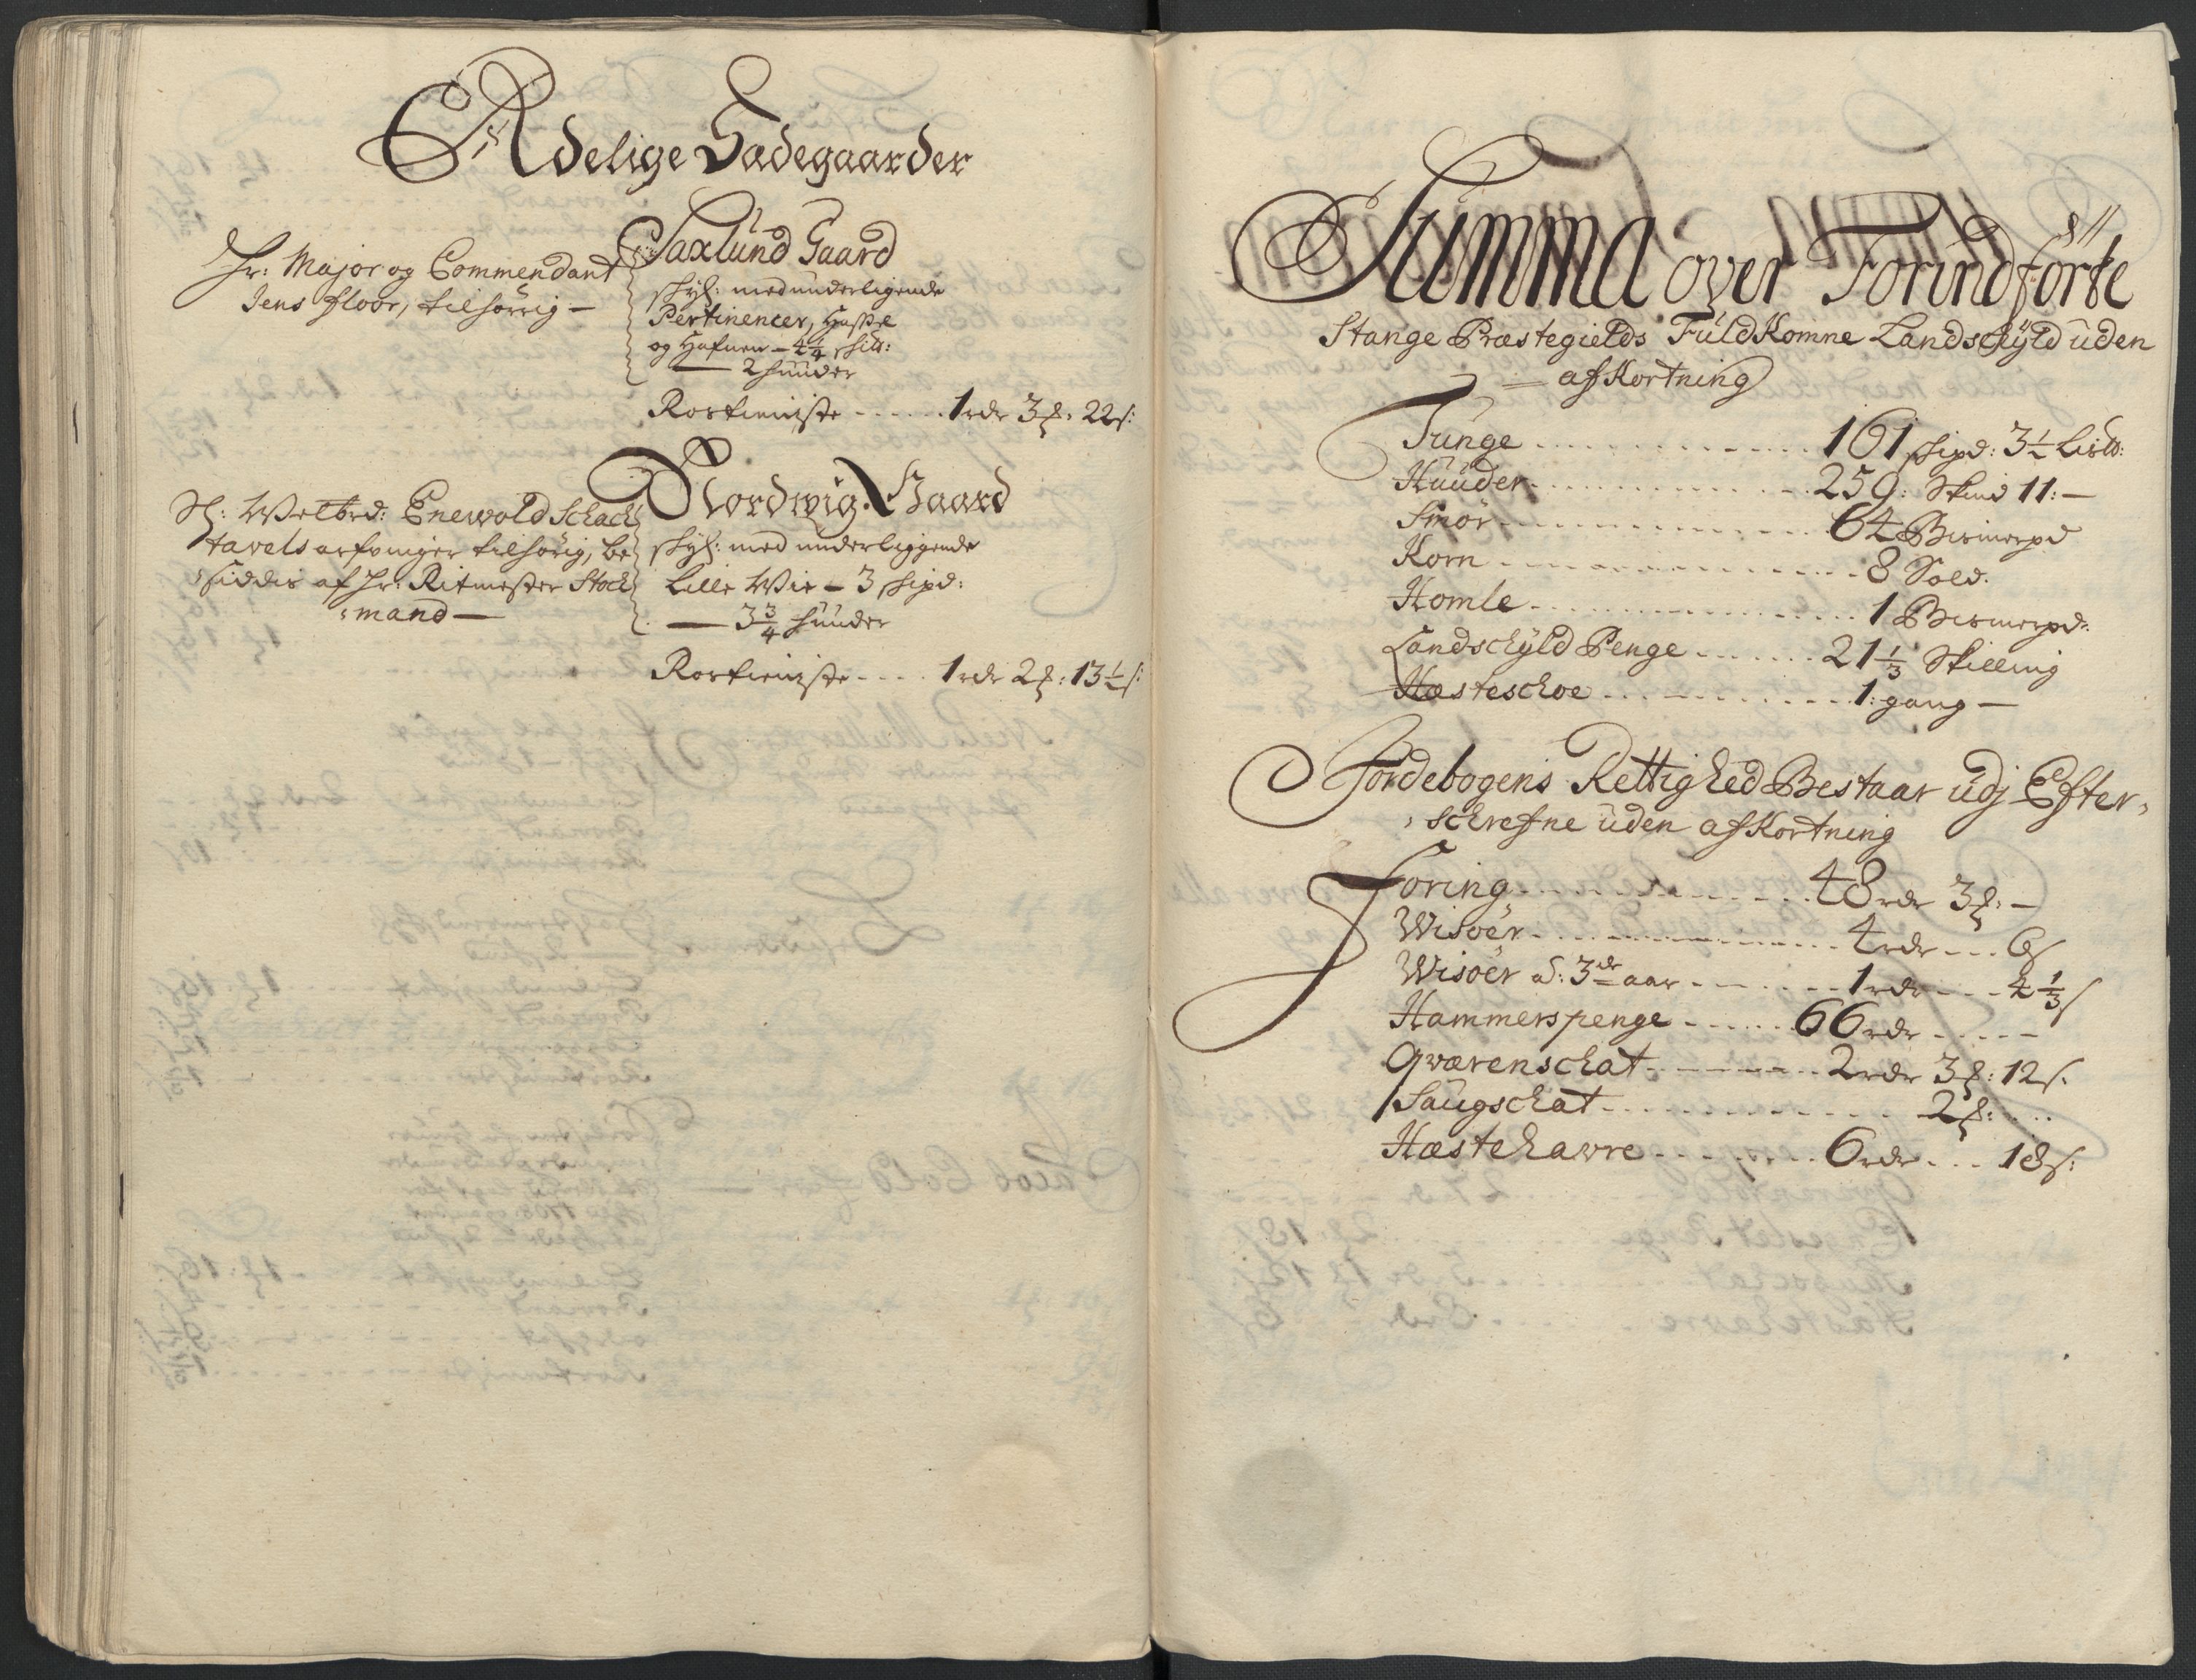 Adelige Sædegaarder
Hr: Major og Commendant
Jens Floor, tilhörrig —
Saxlund Gaard
schyl: med underligende
Pertinencer,
og Hafnen — 4 1/4
— 2 huuder
Rostieniste ...... 1 rdr 3 ꝑ: 22 s:
Sl: Welbrd: Enewold Schack
tavels arfvinger tilhörig, be
siddis af Hr: Ritmester Stock
mand —
Nordwig Gaard
schyl: med underliggende
Lille Wie — 3 schpd:
— 3 3/4 huuder
Rostieniste .... 1 rdr 2 ꝑ: 13 1/2 s:
81
Summa over Forindförte
Stange Præstegields Fuldkomne Landschyld uden
— afKortning
Tunge ............ 161 schpd: 3 1/2 Lis℔:
Huuder ............ 259: Skind 11: —
Smör ............ 64 Bismerpd
Korn ............ 8 Sold.
Homle ............ 1 Bismerpd:
Landschyld Penge ....... 21 1/3 Skilling
Hæsteschoe .......... 1: gang —
Jordebogens Rettighed Bestaar udj Efter,
, schrefne uden afKortning
Foring ............ 48 rdr 3 ꝑ: —
Wisöer ............ 4 rdr ... 6 s
Wisöer a: 3de aar ....... 1 rdr ... 4 1/3 s
Hammerspenge ...... 66 rdr ..... —
Qværenschat ........ 2 rdr 3 ꝑ: 12 s.
Saugschat ............ 2 ꝑ: ...
Hæstehavre ........ 6 rdr ... 18 s: